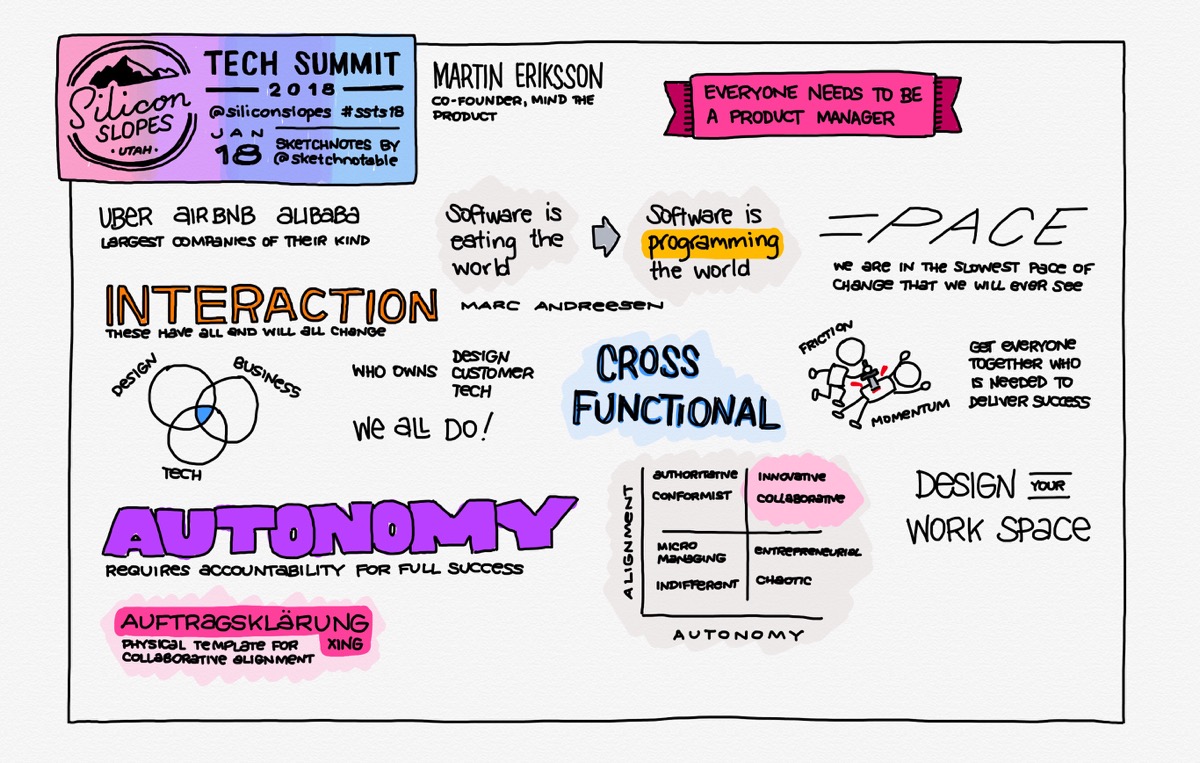 Silicon
SLOPES
• UTAH •
TECH SUMMIT
2018
@siliconslopes #ssts18
JAN
18
SKETCHNOTES BY
@sketchnotable
MARTIN ERIKSSON
CO-FOUNDER, MIND THE
PRODUCT
EVERYONE NEEDS TO BE
A PRODUCT MANAGER
UBER AIRBNB ALIBABA
LARGEST COMPANIES OF THEIR KIND
Software is
eating the
world
Software is
programming
the world
MARC ANDREESEN
PACE
WE ARE IN THE SLOWEST PACE OF
CHANGE THAT WE WILL EVER SEE
INTERACTION
THESE HAVE ALL AND WILL ALL CHANGE
DESIGN
BUSINESS
TECH
WHO OWNS
DESIGN
CUSTOMER
TECH
WE ALL DO!
CROSS
FUNCTIONAL
FRICTION
MOMENTUM
GET EVERYONE
TOGETHER WHO
IS NEEDED TO
DELIVER SUCCESS
AUTONOMY
REQUIRES ACCOUNTABILITY FOR FULL SUCCESS
ALIGNMENT
AUTHORITATIVE
CONFORMIST
INNOVATIVE
COLLABORATIVE
MICRO
MANAGING
INDIFFERENT
ENTREPRENEURIAL
CHAOTIC
AUTONOMY
DESIGN YOUR
WORK SPACE
AUFTRAGSKLÄRUNG
PHYSICAL TEMPLATE FOR
COLLABORATIVE ALIGNMENT
XING